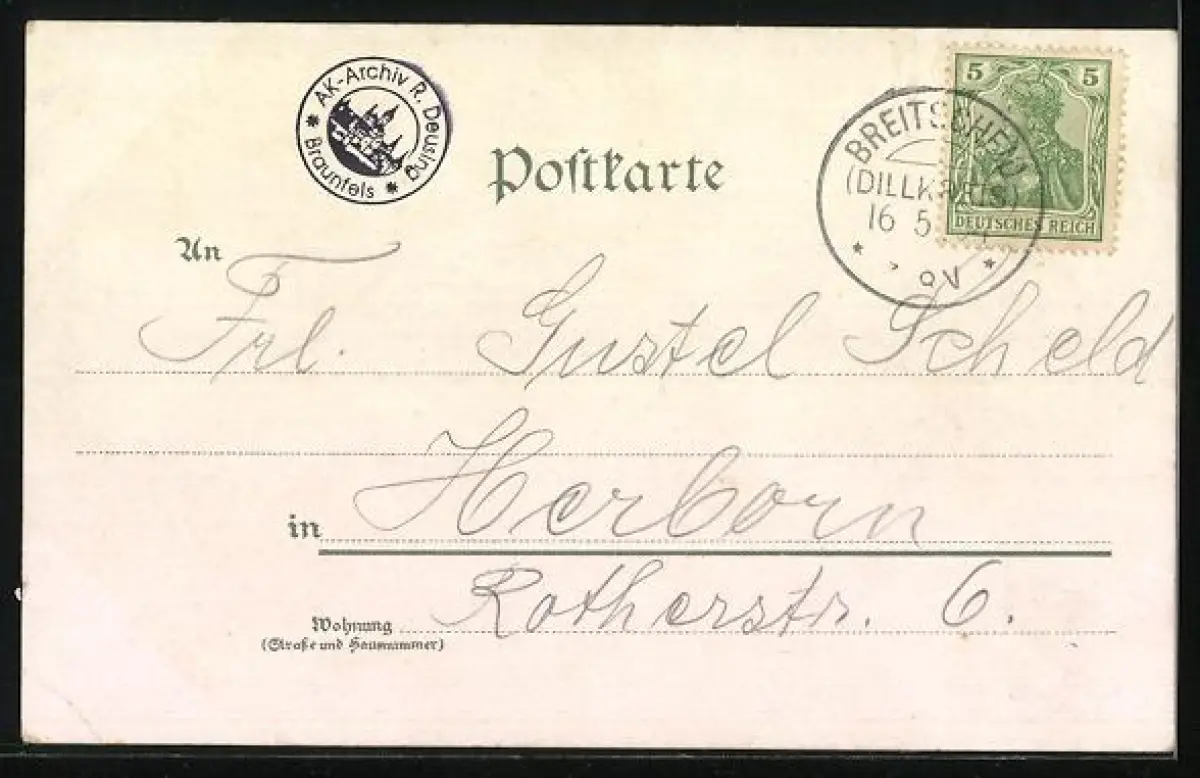 AK-Archiv R. Deusing
* Braunfels *
Postkarte
BREITSCHEID
(DILLKREIS)
16 5
5 5
DEUTSCHES REICH
An
Frl. Gustel Scheld
in Herborn
Rotherstr. 6.
Wohnung
(Straße und Hausnummer)